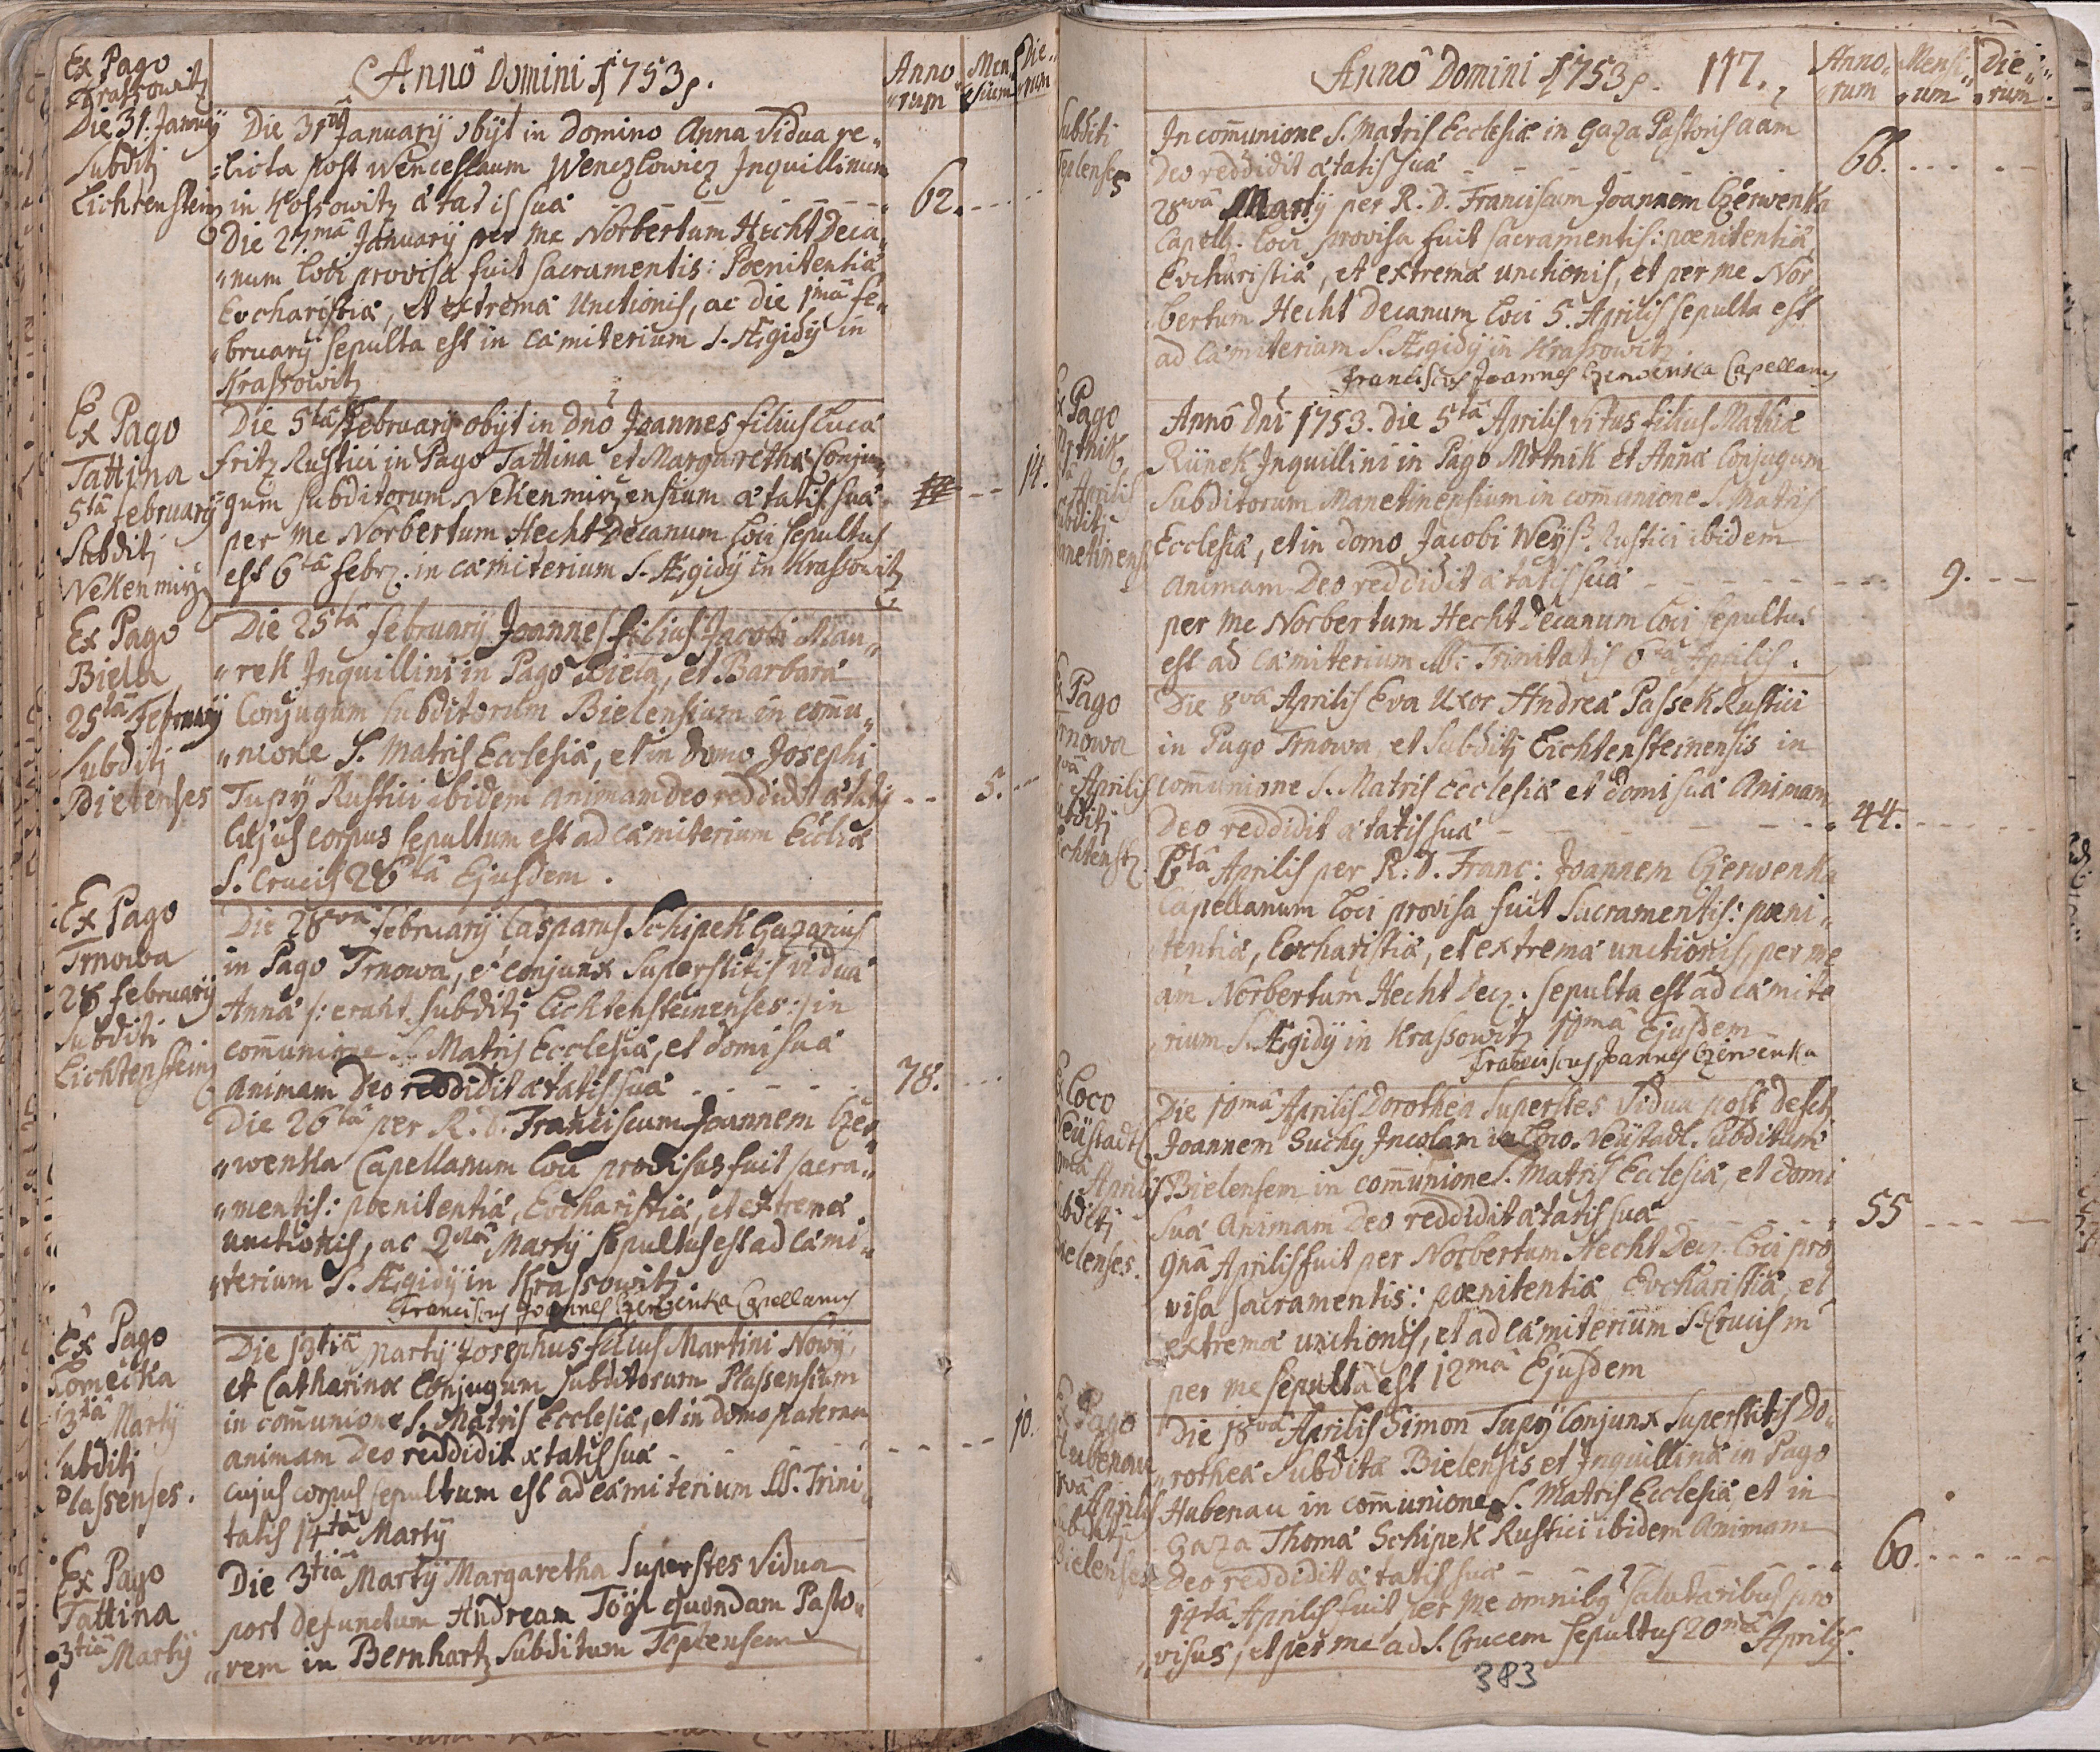 Ex Pago
Krassowitz
Die 31. Januarij
Subditj
Lichtenstein
Annô Domini 1753.
Anno„ Men„ Die„
„rum „sium „rum
Die 31mâ Januarij obijt in Domino Anna Vidua re„
„licta post Wenceslaum Wenczlowicz Inquillinum
in Kossowitz ætatis suæ 62.
Die 27.mâ Januarij per me Norbertum Hecht Deca„
„num loci provisa fuit sacramentis: Pœnitentiæ
Evcharistiæ, et extremæ Unctionis, ac die 1mâ Fe„
„bruarij sepulta est in Cæmiterium S. Ægidij in
Krassowitz
Ex Pago
Tattina
5tâ February
Subditj
Nekenmirz
Die 5tâ February obijt in Dno Joannes filius Lucæ
Fritz Rustici in Pago Tattina et Margarethæ Conju„
gum subditorum Nekenmirzensium ætatis suæ 14.
per me Norbertum Hecht Decanum loci sepultus
est 6tâ Febr. in cæmiterium S. Ægidij in Krassowitz
Ex Pago
Biela
25tâ February
Subditj
Bielenses
Die 25tâ February Joannes filius Jacobi Mau„
„rek Inquillini in Pago Biela, et Barbaræ
Conjugum subditorum Bielensium in com̄u„
„nione S. Matris Ecclesiæ, et in domo Josephi
Tupij Rustici ibidem animam deo reddidit ætatis 5.
Cujus corpus sepultum est ad cæmiterium Eccliæ
S. Crucis 26tâ Ejusdem.
Ex Pago
Trnowa
28 February
Subditi
Lichtenstein
Die 28vâ February Casparus Schipek Gazarius
in Pago Trnowa, et conjunx Superstitis viduæ
Annæ /: erant subditj Lichtensteinenses :/ in
com̄unione S. Matris Ecclesiæ, et domi suæ
animam deo reddidit ætatis suæ 78.
Die 26tâ per R. D. Franciscum Joannem Czer„
„wenka Capellanum loci provisus fuit sacra„
„mentis: pœnitentiæ, Evcharistiæ, et extremæ
unctionis, ac 2dâ Martij sepultus est ad Cæmi„
„terium S. Ægidij in Krassowitz.
Franciscus Joannes Czerwenka Capellanus
Ex Pago
13tiâ Martij
Subditj
Plassenses.
Die 13tiâ Martij Josephus filius Martini Nowij
et Catharinæ Conjugum subditorum Plassensium
in com̄unione S. Matris Ecclesiæ, et in domo paterna
animam deo reddidit ætatis suæ 10.
cujus corpus sepultum est ad cæmiterium SS. Trini„
tatis 14tâ Martij
Ex Pago
Tattina
3tiâ Martij
Die 3tiâ Martij Margaretha Superstes Vidua
post defunctum Andream Tögl quondam Pasto„
„rem in Bernhartz subditum Teplensem
Annô Domini 1753. 117.
Anno„ Mensi„ Die„
„rum „um „rum.
Subditi
Teplenses
In com̄unione S. Matris Ecclesiæ in Gaza Pastoris aam
Deo reddidit ætatis suæ 66.
28vâ Martij per R. D. Franciscum Joannem Czerwenka
Capell. loci provisa fuit sacramentis: pœnitentiæ
Evcharistiæ, et extremæ unctionis, et per me Nor„
bertum Hecht Decanum loci 5. Aprilis sepulta est
ad Cæmiterium S. Ægidij in Krassowitz
Franciscus Joannes Czerwenka Capellanus
Ex Pago
Mrtnik
5tâ Aprilis
Subditj
Manetinens
Annô Dni 1753. Die 5tâ Aprilis Vitus filius Mathiæ
Riinek Inquillini in Pago Mrtnik et Annæ Conjugum
Subditorum Manetinensium in com̄unione S. Matris
Ecclesiæ, et in domo Jacobi Weys Rustici ibidem
animam Deo reddidit ætatis suæ 9.
per me Norbertum Hecht Decanum loci sepultus
est ad cæmiterium SS: Trinitatis 6tâ Aprilis.
Ex Pago
Trnowa
8vâ Aprilis
Subditj
Lichtenst
Die 8vâ Aprilis Eva Uxor Andreæ Passek Rustici
in Pago Trnowa, et Subditj Lichtensteinensis in
com̄unione S. Matris Ecclesiæ et domi suæ Animam
Deo reddidit ætatis suæ 44.
6tâ Aprilis per R. D. Franc: Joannem Czerwenka
Capellanum loci provisa fuit Sacramentis: pœni„
tentiæ, Evcharistiæ, et extremæ unctionis, per me
am Norbertum Hecht Dec. sepulta est ad cæmite
rium S. Ægidij in Krassowitz 10mâ Ejusdem
Franciscus Joannes Czerwenka
Ex Loco
Neüstadtl
10mâ Aprilis
Subditj
Bielenses.
Die 10mâ Aprilis Dorothea Superstes Vidua post defct
Joannem Suchy Incolam in Loco Neüstadl. Subditum
Bielensem in com̄unione S. Matris Ecclesiæ, et domi
suæ Animam Deo reddidit ætatis suæ 55
9nâ Aprilis fuit per Norbertum Hecht Dec. loci pro
visa sacramentis: pœnitentiæ Evcharistiæ, et
extremæ unctionis, et ad cæmiterium S. Crucis in
per me sepulta est 12mâ Ejusdem
Ex Pago
Hubenau
18vâ Aprilis
Subditj
Bielenses
Die 18vâ Aprilis Simon Tupij Conjunx Superstitis Do„
„rotheæ Subditæ Bielensis et Inquillinæ in Pago
Hubenau in com̄unione S. Matris Ecclesiæ, et in
Gaza Thomæ Schipek Rustici ibidem Animam
Deo reddidit ætatis suæ 60.
14tâ Aprilis fuit per me omnibq salutaribus pro
„visus, et per me ad S. Crucem sepultus 20mâ Aprilis.
383